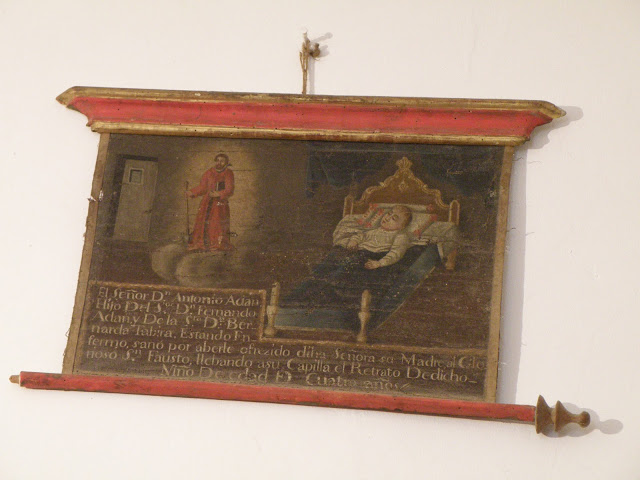 El Señor Dn Antonio Adan
Hijo Del Sr. Dn Fernando
Adan y De la Sra Da Ber-
narda Tabira, Estando En-
fermo, sano por aberle ofrecido diba señora su Madre al Glo-
rioso Sn Fausto, llebando a su Capilla el Retrato De dicho
Niño De edad De Cuatro años